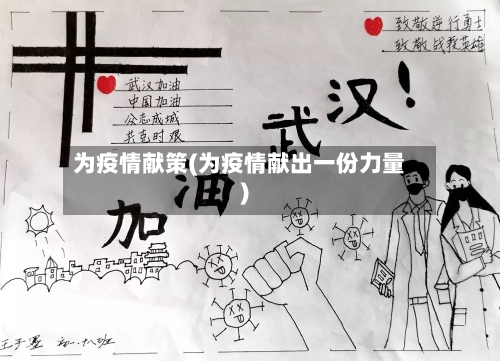 致敬逆行勇士
致敬战疫英雄
武汉加油
中国加油
众志成城
共克时艰
武汉！
加油
为疫情献策(为疫情献出一份力量
)
初一·十八班